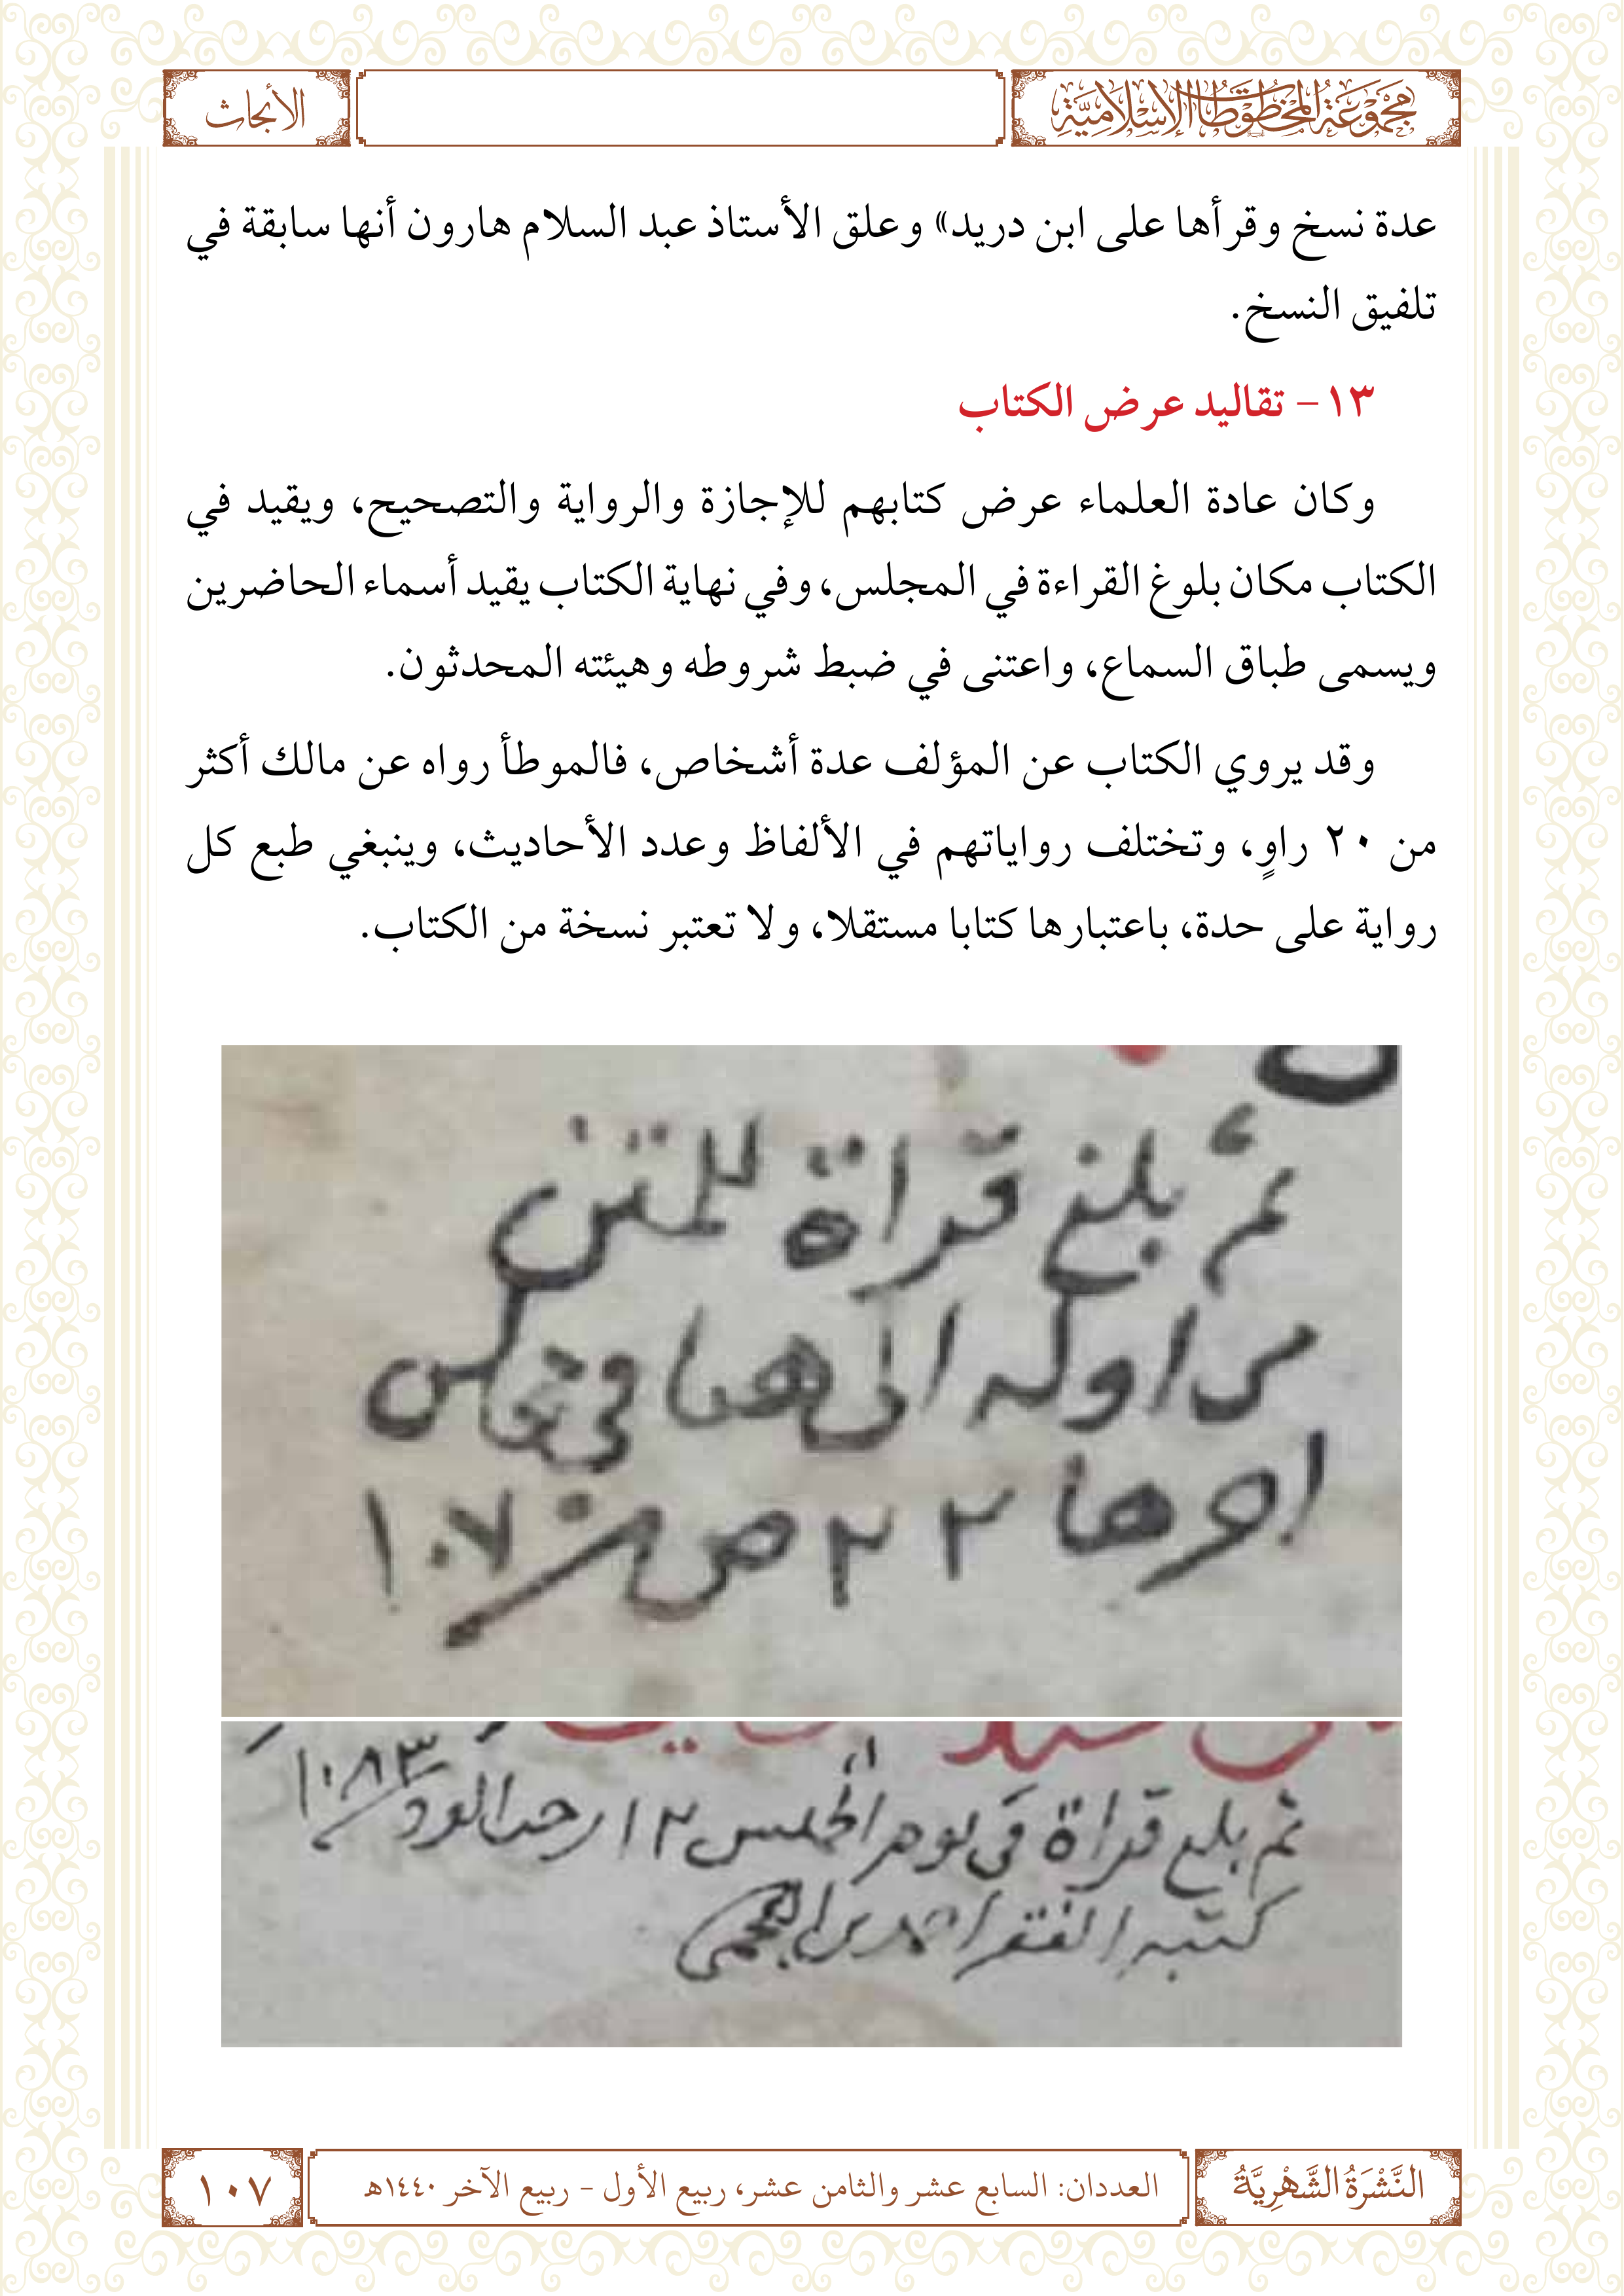 مَجْمُوعَةُ المَخْطُوطَاتِ الإِسْلَامِيَّةِ
الأبحاث
عدة نسخ وقرأها على ابن دريد» وعلق الأستاذ عبد السلام هارون أنها سابقة في
تلفيق النسخ.
١٣- تقاليد عرض الكتاب
وكان عادة العلماء عرض كتابهم للإجازة والرواية والتصحيح، ويقيد في
الكتاب مكان بلوغ القراءة في المجلس، وفي نهاية الكتاب يقيد أسماء الحاضرين
ويسمى طباق السماع، واعتنى في ضبط شروطه وهيئته المحدثون.
وقد يروي الكتاب عن المؤلف عدة أشخاص، فالموطأ رواه عن مالك أكثر
من ٢٠ راوٍ، وتختلف رواياتهم في الألفاظ وعدد الأحاديث، وينبغي طبع كل
رواية على حدة، باعتبارها كتابا مستقلا، ولا تعتبر نسخة من الكتاب.
ثم بلغ قراة للمتن
من اوله الى هنا في مجالس
اخرها ٢٢ ص
ثم بلغ قراة في يوم الخميس ١٢ رجب الفرد ١٠٨٣
كتبه الفقير احمد بن العجمي
النَّشْرَةُ الشَّهْرِيَّةُ
العددان: السابع عشر والثامن عشر، ربيع الأول - ربيع الآخر ١٤٤٠هـ
١٠٧